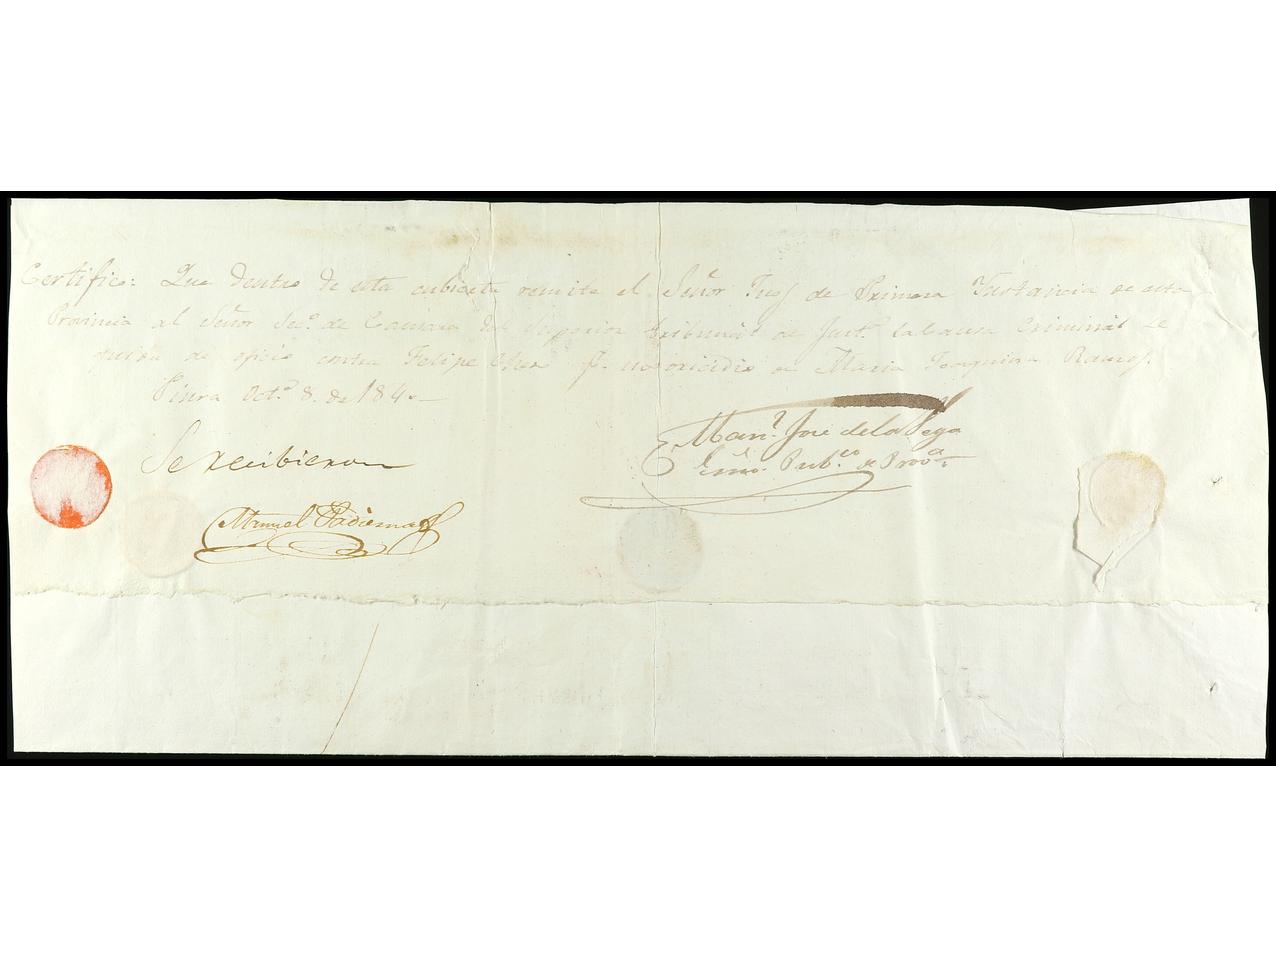 Certifico: Que dentro de esta cubierta remite el Señor Juez de Primera Instancia de esta
Provincia al Señor Sec.º de Camara del Superior Tribunal de Just.ª la causa Criminal se
guida de oficio contra Felipe p.r homicidio en Maria Joaquina Ramos.
Piura Oct.e 8. de 1840
Man.l José de la Vega
Esno. Pub.co de Prov.a
Se recibieron
Manuel